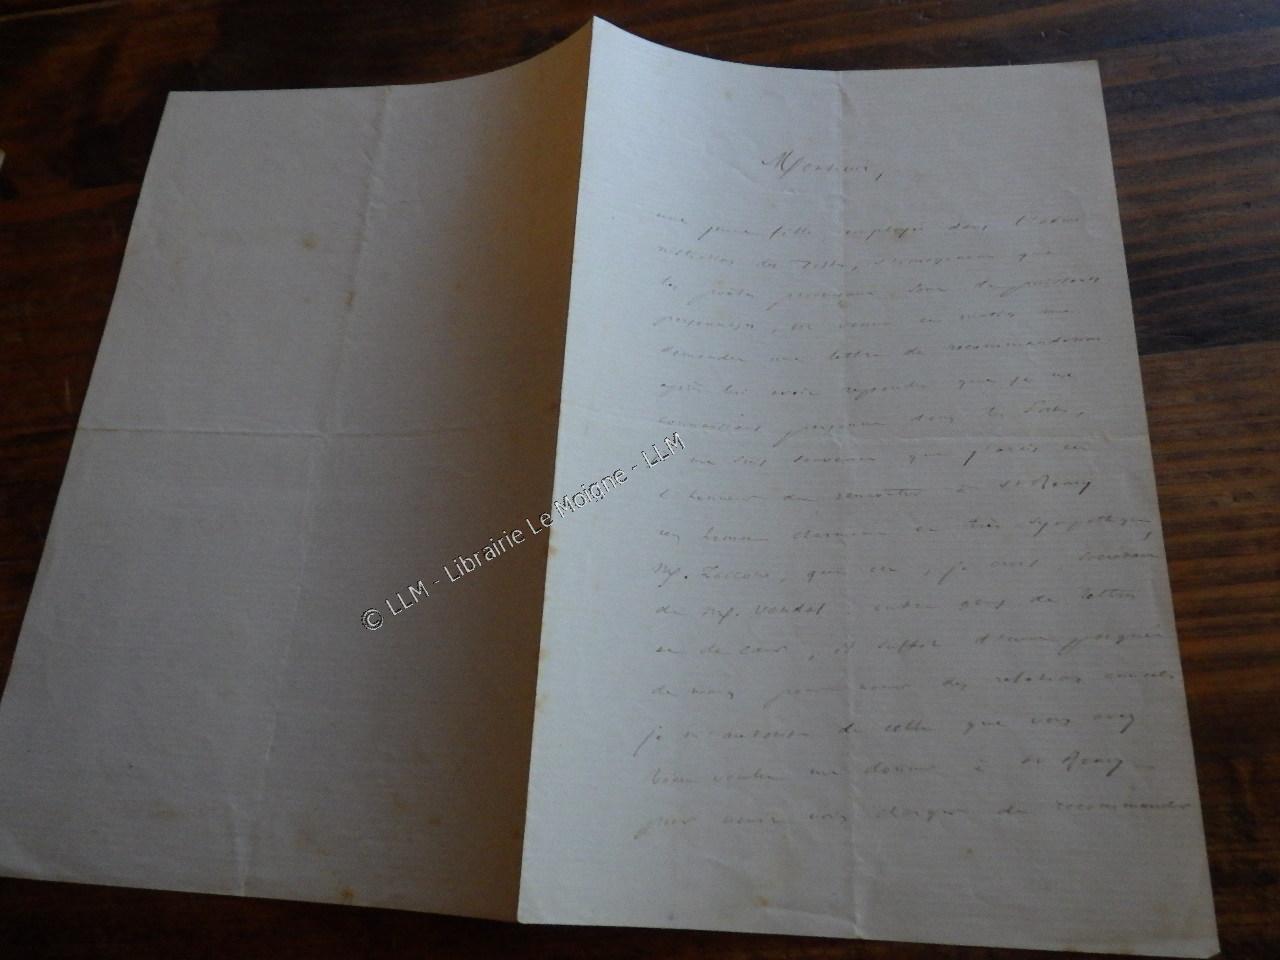 Monsieur,
une jeune fille employée dans l'admi
nistration des Postes, s'imaginant que
les poètes provençaux sont de puissants
personnages, est venue ce matin me
demander une lettre de recommandation
après lui avoir répondu que je ne
connaissais personne dans les Postes,
me suis souvenu que j'avais eu
l'honneur de rencontrer à St Remy
un homme charmant et très sympathique,
M. Zaccone, qui est, je crois, secrétaire
de M. Vandal. entre gens de lettres
et de cœur, il suffit d'une poignée
de main pour nouer des relations
je m'autorise de celle que vous avez
bien voulu me donner à St Remy
pour venir vous de recommander
© LLM - Librairie Le Moigne - LLM